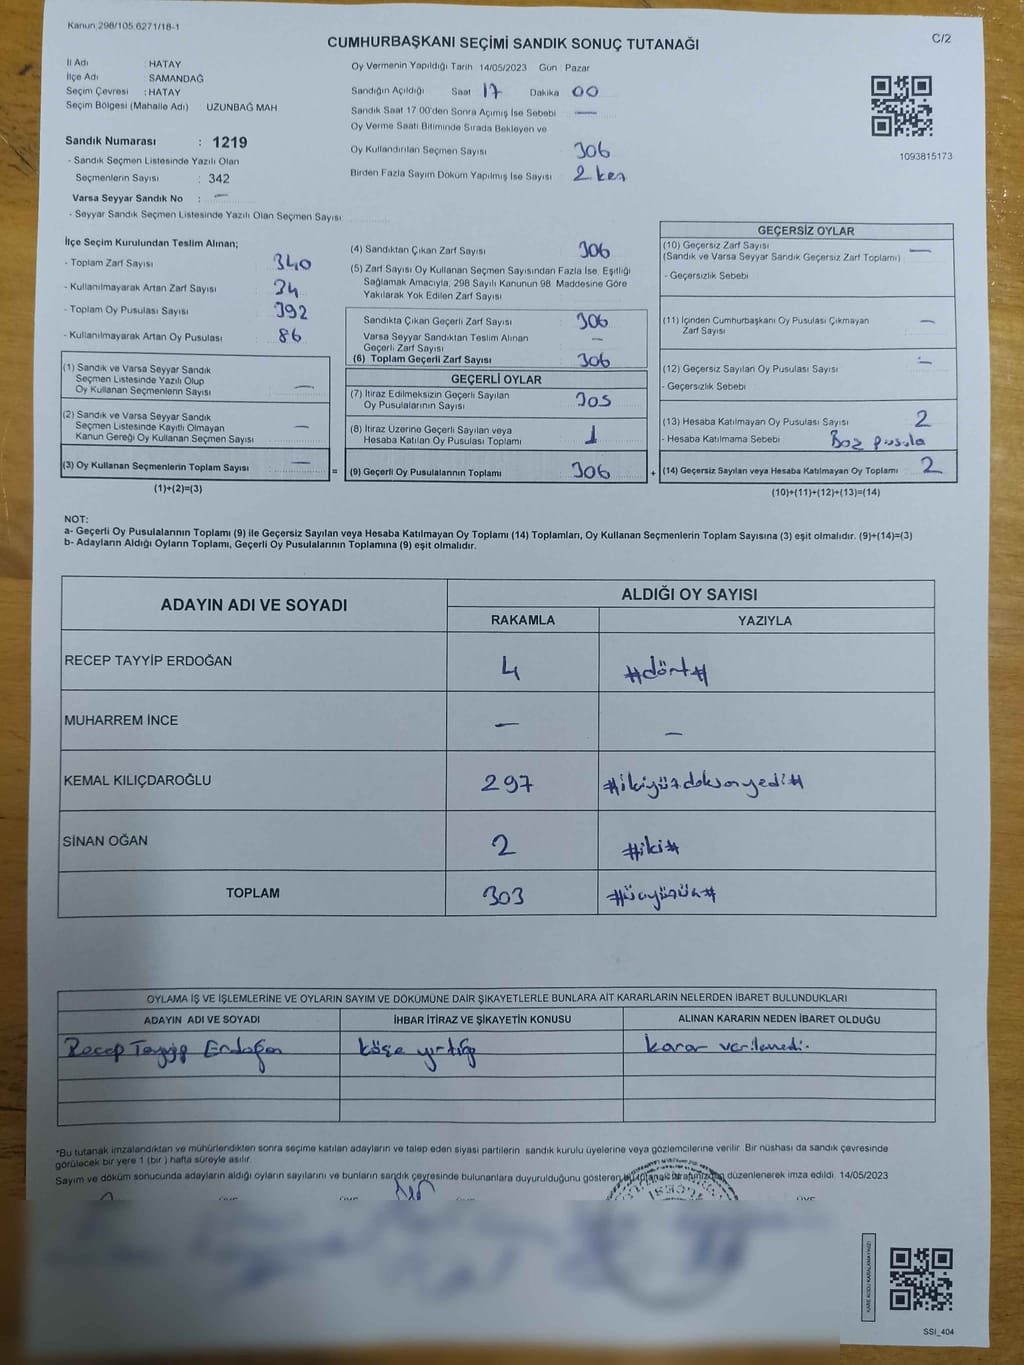 Kanun 298/105 6271/18-1
C/2
CUMHURBAŞKANI SEÇİMİ SANDIK SONUÇ TUTANAĞI
İl Adı : HATAY
İlçe Adı : SAMANDAĞ
Seçim Çevresi : HATAY
Seçim Bölgesi (Mahalle Adı) UZUNBAĞ MAH
Sandık Numarası : 1219
- Sandık Seçmen Listesinde Yazılı Olan
Seçmenlerin Sayısı : 342
Varsa Seyyar Sandık No : —
- Seyyar Sandık Seçmen Listesinde Yazılı Olan Seçmen Sayısı
Oy Vermenin Yapıldığı Tarih 14/05/2023 Gün Pazar
Sandığın Açıldığı Saat 17 Dakika 00
Sandık Saat 17 00'den Sonra Açımış İse Sebebi —
Oy Verme Saati Bitiminde Sırada Bekleyen ve
Oy Kullandırılan Seçmen Sayısı 306
Birden Fazla Sayım Döküm Yapılmış İse Sayısı 2 kez
1093815173
İlçe Seçim Kurulundan Teslim Alınan;
- Toplam Zarf Sayısı 340
- Kullanılmayarak Artan Zarf Sayısı 34
- Toplam Oy Pusulası Sayısı 392
- Kullanılmayarak Artan Oy Pusulası 86
(1) Sandık ve Varsa Seyyar Sandık
Seçmen Listesinde Yazılı Olup
Oy Kullanan Seçmenlerin Sayısı —
(2) Sandık ve Varsa Seyyar Sandık
Seçmen Listesinde Kayıtlı Olmayan
Kanun Gereği Oy Kullanan Seçmen Sayısı —
(3) Oy Kullanan Seçmenlerin Toplam Sayısı —
(1)+(2)=(3)
(4) Sandıktan Çıkan Zarf Sayısı 306
(5) Zarf Sayısı Oy Kullanan Seçmen Sayısından Fazla İse, Eşitliği
Sağlamak Amacıyla, 298 Sayılı Kanunun 98 Maddesine Göre
Yakılarak Yok Edilen Zarf Sayısı
Sandıkta Çıkan Geçerli Zarf Sayısı 306
Varsa Seyyar Sandıktan Teslim Alınan
Geçerli Zarf Sayısı —
(6) Toplam Geçerli Zarf Sayısı 306
GEÇERLİ OYLAR
(7) İtiraz Edilmeksizin Geçerli Sayılan
Oy Pusulalarının Sayısı 305
(8) İtiraz Üzerine Geçerli Sayılan veya
Hesaba Katılan Oy Pusulası Toplamı 1
= (9) Geçerli Oy Pusulalarının Toplamı 306 +
GEÇERSİZ OYLAR
(10) Geçersiz Zarf Sayısı —
(Sandık ve Varsa Seyyar Sandık Geçersiz Zarf Toplamı)
- Geçersizlik Sebebi
(11) İçinden Cumhurbaşkanı Oy Pusulası Çıkmayan
Zarf Sayısı —
(12) Geçersiz Sayılan Oy Pusulası Sayısı —
- Geçersizlik Sebebi
(13) Hesaba Katılmayan Oy Pusulası Sayısı 2
- Hesaba Katılmama Sebebi Boz pusula
(14) Geçersiz Sayılan veya Hesaba Katılmayan Oy Toplamı 2
(10)+(11)+(12)+(13)=(14)
NOT:
a- Geçerli Oy Pusulalarının Toplamı (9) ile Geçersiz Sayılan veya Hesaba Katılmayan Oy Toplamı (14) Toplamları, Oy Kullanan Seçmenlerin Toplam Sayısına (3) eşit olmalıdır. (9)+(14)=(3)
b- Adayların Aldığı Oyların Toplamı, Geçerli Oy Pusulalarının Toplamına (9) eşit olmalıdır.
ADAYIN ADI VE SOYADI
ALDIĞI OY SAYISI
RAKAMLA YAZIYLA
RECEP TAYYİP ERDOĞAN 4 #dört#
MUHARREM İNCE — —
KEMAL KILIÇDAROĞLU 297 #ikiyüzdoksanyedi#
SİNAN OĞAN 2 #iki#
TOPLAM 303 #üçyüzüç#
OYLAMA İŞ VE İŞLEMLERİNE VE OYLARIN SAYIM VE DÖKÜMÜNE DAİR ŞİKAYETLERLE BUNLARA AİT KARARLARIN NELERDEN İBARET BULUNDUKLARI
ADAYIN ADI VE SOYADI İHBAR İTİRAZ VE ŞİKAYETİN KONUSU ALINAN KARARIN NEDEN İBARET OLDUĞU
Recep Tayyip Erdoğan köşe yırtığı karar verilemedi.
*Bu tutanak imzalandıktan ve mühürlendikten sonra seçime katılan adayların ve talep eden siyasi partilerin sandık kurulu üyelerine veya gözlemcilerine verilir Bir nüshası da sandık çevresinde
görülecek bir yere 1 (bir ) hafta süreyle asılır.
Sayım ve döküm sonucunda adayların aldığı oyların sayılarını ve bunların sandık çevresinde bulunanlara duyurulduğunu gösteren düzenlenerek imza edildi 14/05/2023
SSI_404